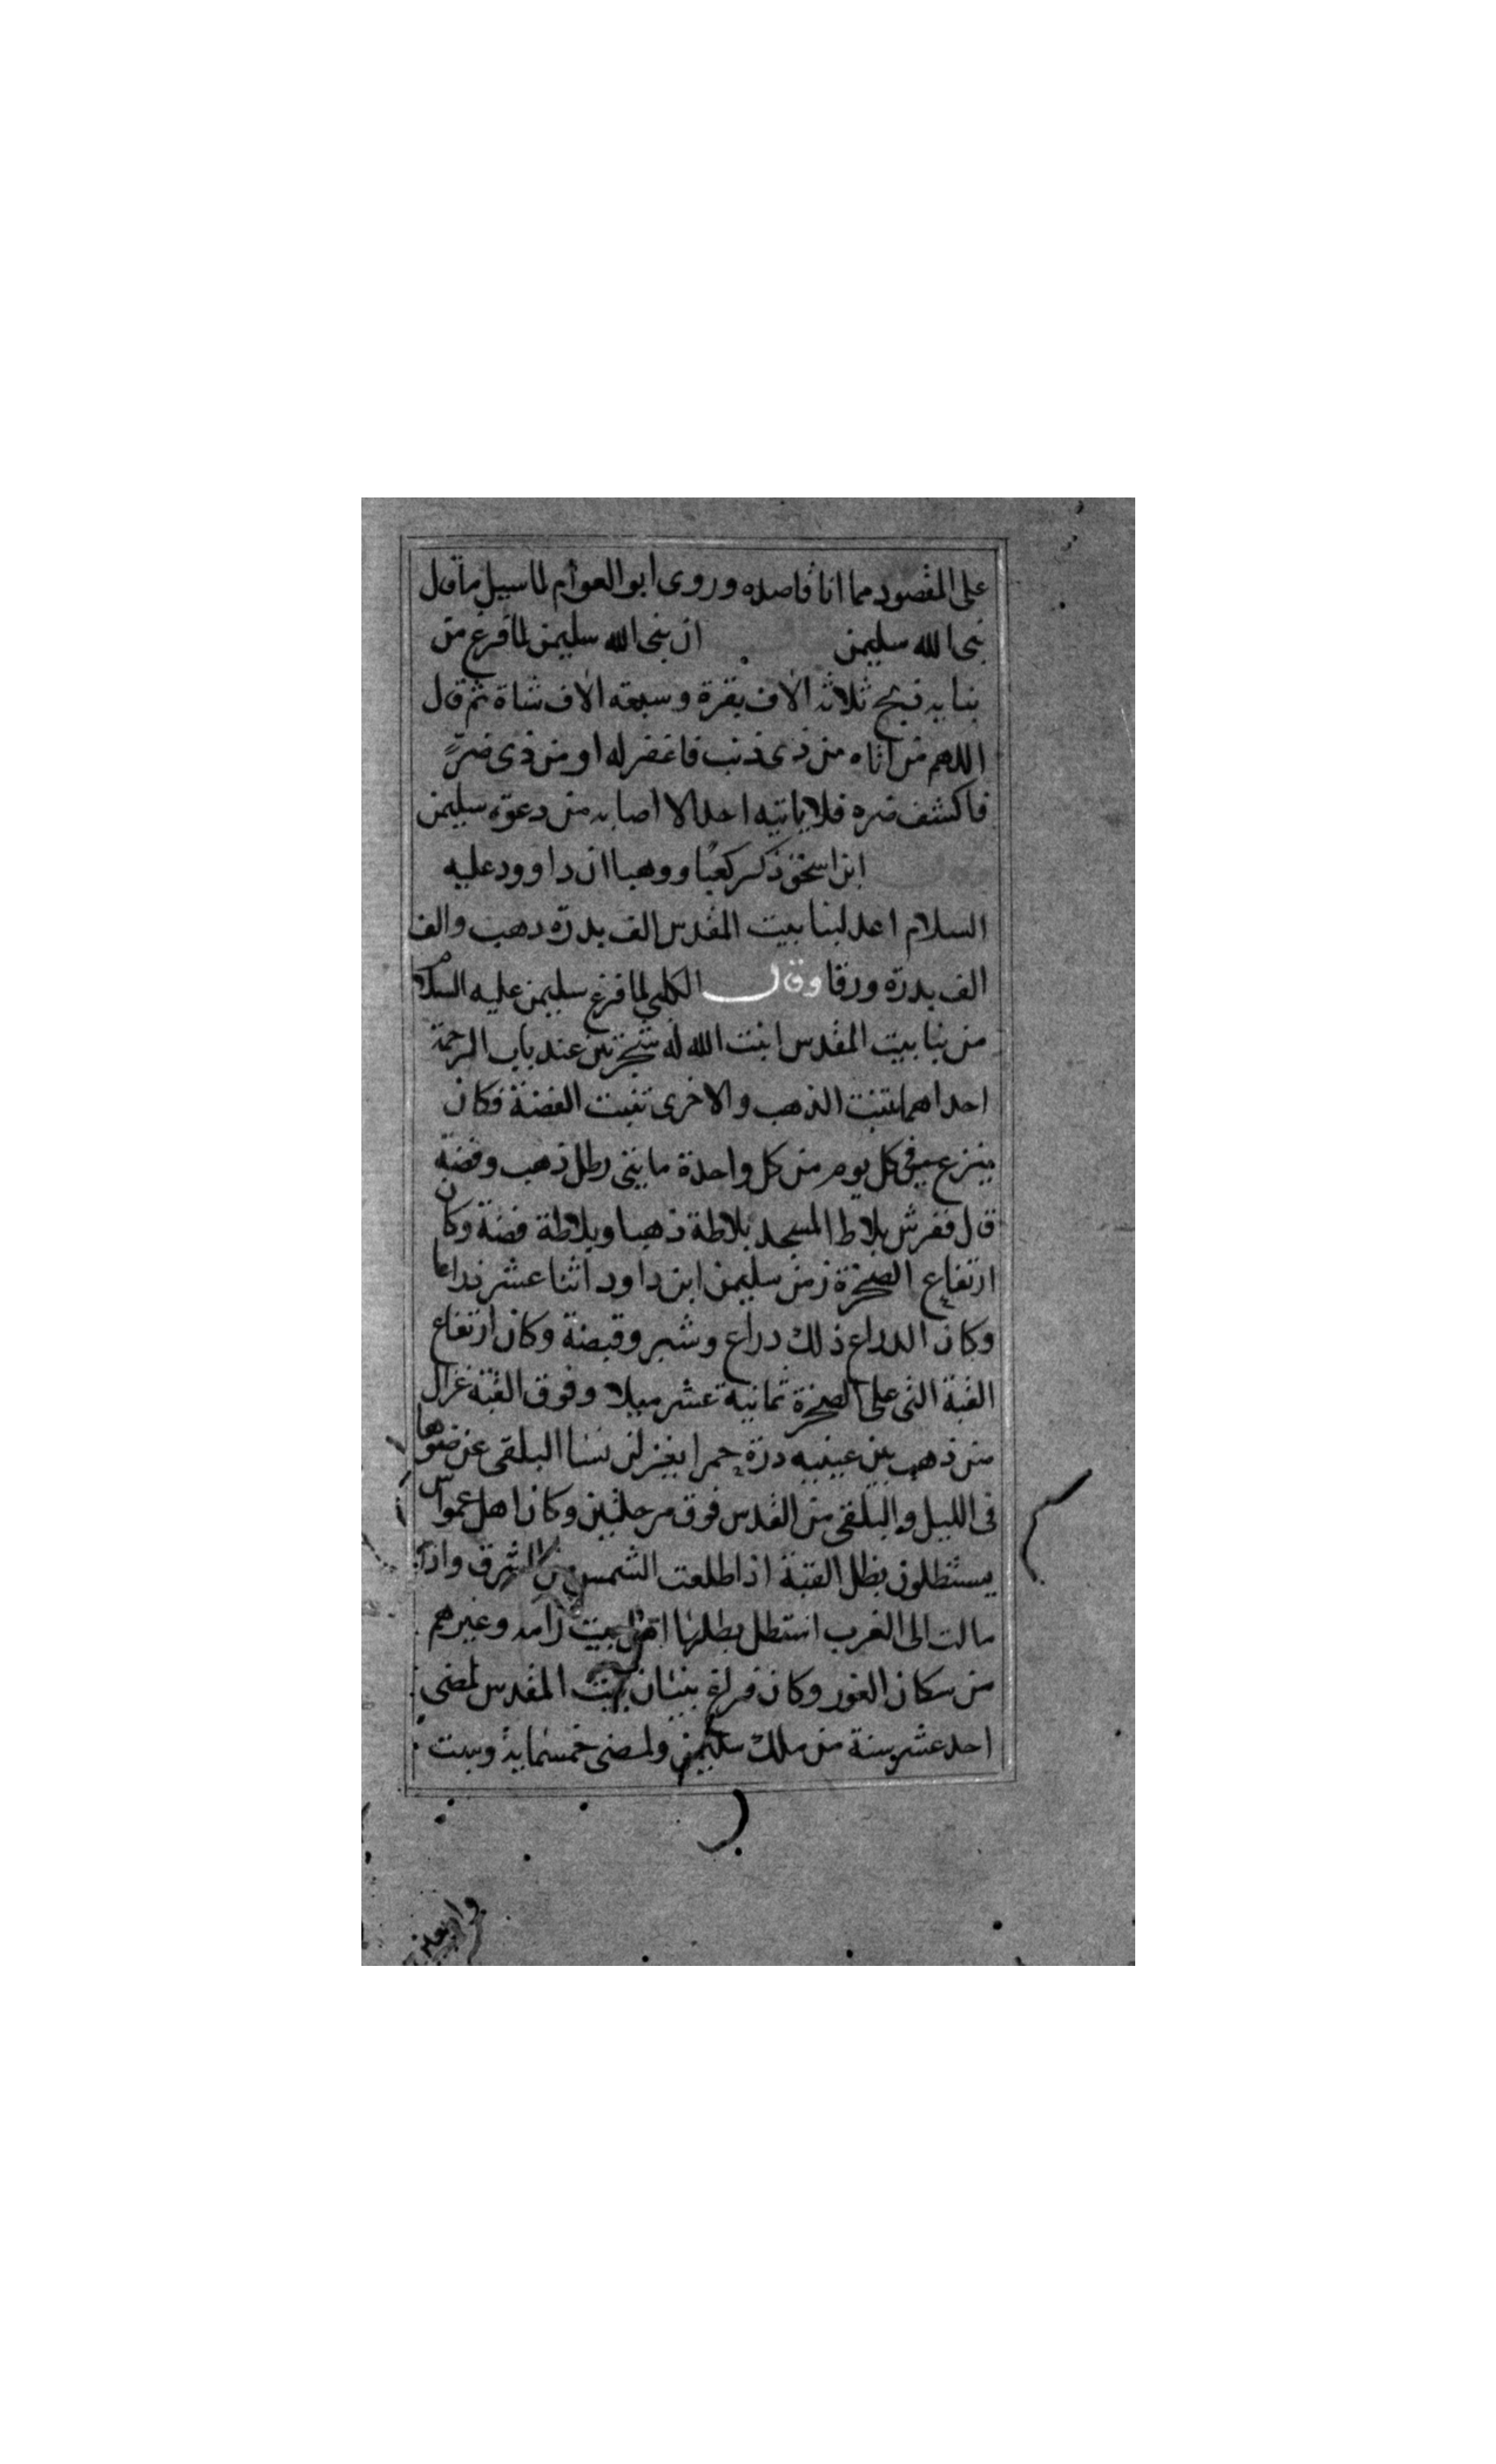 على المقصود مما انا قاصده وروى ابو العوام لما سيل ما قال
نبى الله سليمن ان نبى الله سليمن لما فرغ من
بنايه ذبح ثلاثه الاف بقرة وسبعه الاف شاة ثم قال
اللهم من اتاه من ذى ذنب فاغفر له او من ذى ضرٍ
فاكشف ضره فلا ياتيه احد الا اصابه من دعوة سليمن
ابن اسحق ذكر كعبًا ووهبا ان داوود عليه
السلام اعد لبنا بيت المقدس الف بدرة دهب والف
الف بدرة ورقا وقال الكلبي لما فرغ سليمن عليه السلام
من بنا بيت المقدس انبت الله له شجرتين عند باب الرحمة
احداهما تنبت الذهب والاخرى تنبت الفضة فكان
ينزع فى كل يوم من كل واحدة مايتى رطل ذهب وفضة
قال ففرش بلاط المسجد بلاطة ذهبا وبلاطة فضة وكان
ارتفاع الصخرة زمن سليمن ابن داود اثنا عشر ذراعا
وكان الدراع ذلك دراع وشبر وقبضة وكان ارتفاع
القبة التى على الصخرة ثمانية عشر ميلا وفوق القبة غزال
من ذهب بين عينيه درة حمرا يغزلن نسا البلقى عن ضوها
فى الليل والبلقى من القدس فوق مرحلتين وكان اهل عمواس
يستظلون بظل القبة اذا طلعت الشمس من الشرق واذا
مالت الى الغرب استظل بظلها اهل بيت رامه وغيرهم
من سكان الغور وكان فراغ بنيان بيت المقدس لمضى
احد عشر سنة من ملك سليمن ولمضى خمسماية وست
واربعين